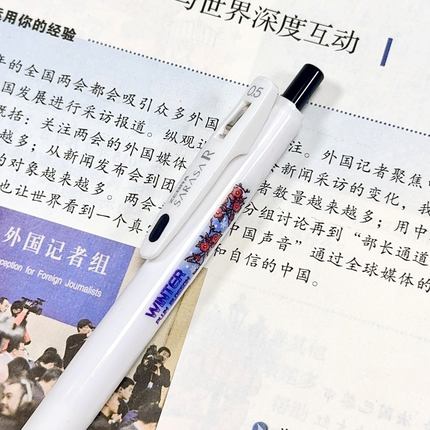 运用你的经验
与世界深度互动
年的全国两会都会吸引众多外国
国发展进行采访报道。纵观近
注。外国记者聚焦
概括：关注两会的外国媒体
新闻采访的变化，我
越多；从新闻发布会到团
者数量越来越多；用中
的对象越来越多。两会
分组讨论再到“部长通道
也让世界看到一个真
中国声音”通过全球媒体的
和自信的中国。
外国记者组
Reception for Foreign Journalists
0.5
SARASA R
WINTER